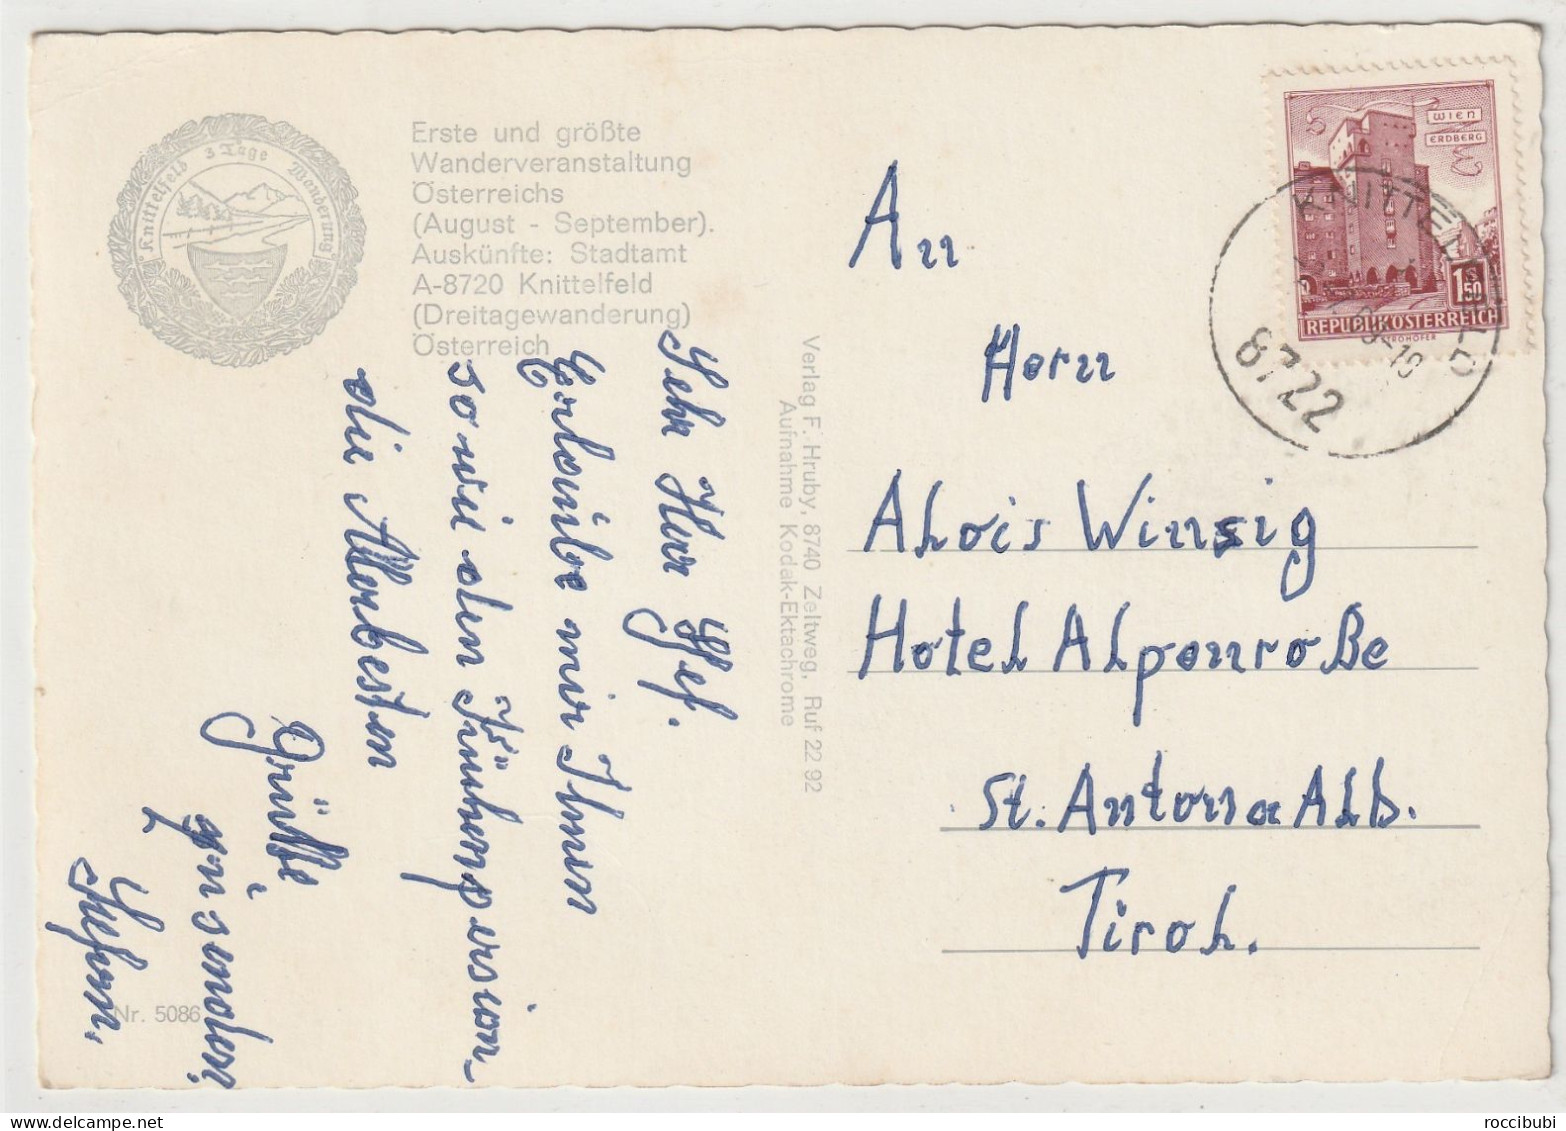 Knittelfeld 3 Tage Wanderung
Erste und größte
Wanderveranstaltung
Österreichs
(August - September).
Auskünfte: Stadtamt
A-8720 Knittelfeld
(Dreitagewanderung)
Österreich
Sehr Herr
Erlaube mir Ihnen
sowie den
die Allerbesten
Grüße
zu senden,
Stefan.
Nr. 5086
Verlag F. Hruby, 8740 Zeltweg, Ruf 22 92
Aufnahme Kodak-Ektachrome
WIEN
ERDBERG
1.50
REPUBLIK ÖSTERREICH
KNITTELFELD
8722
An
Herrn
Alois Winsig
Hotel Alpenroße
St. Anton a Alb.
Tirol.
roccibubi